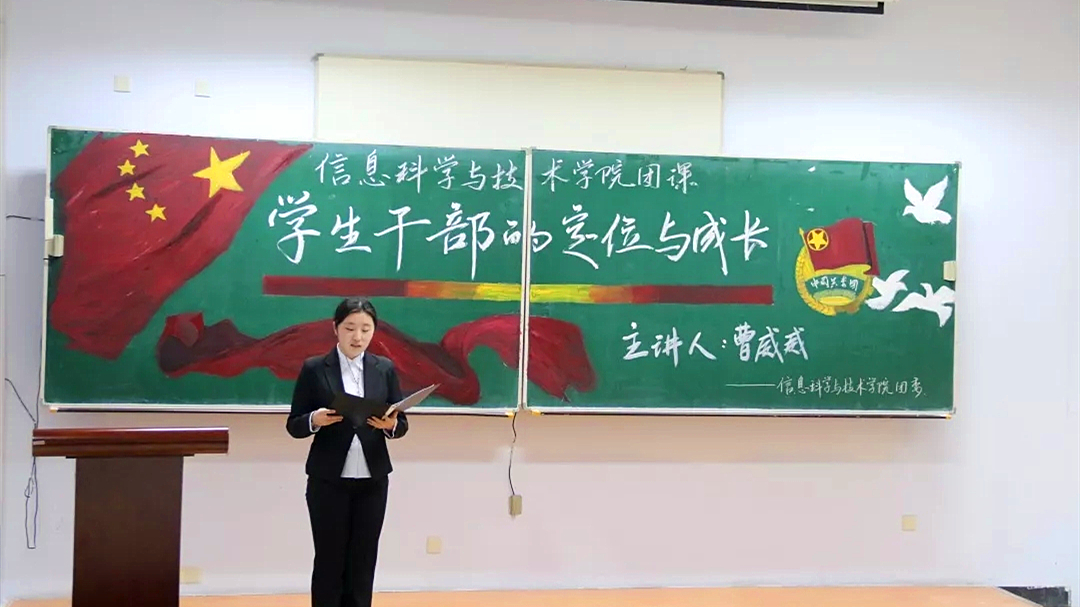 信息科学与技术学院团课
学生干部的定位与成长
中国共青团
主讲人:曹威威
——信息科学与技术学院团委